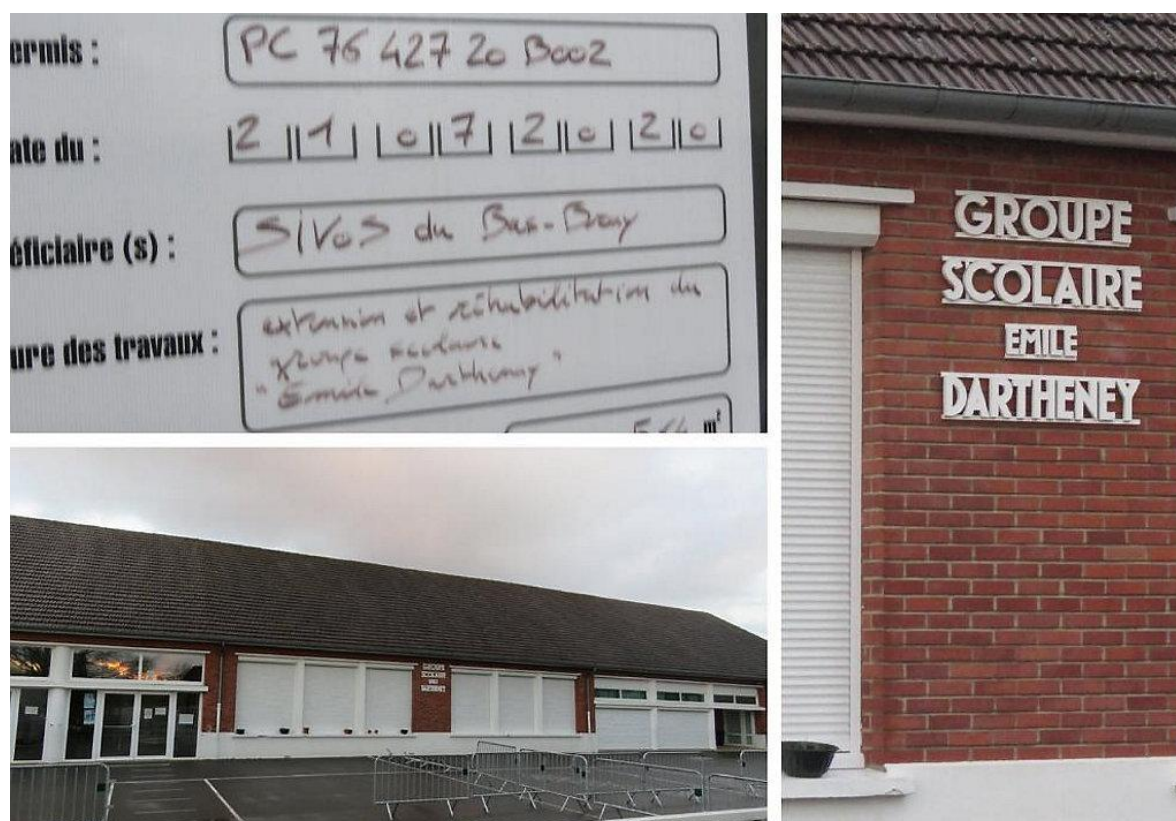 ermis : PC 76 427 20 B002
ate du : 21 07 20 20
éficiaire (s) : SIVOS du Bas-Bray
ure des travaux : extension et réhabilitation du
groupe scolaire
"Emile Dartheney"
m²
GROUPE
SCOLAIRE
EMILE
DARTHENEY
GROUPE
SCOLAIRE
EMILE
DARTHENEY